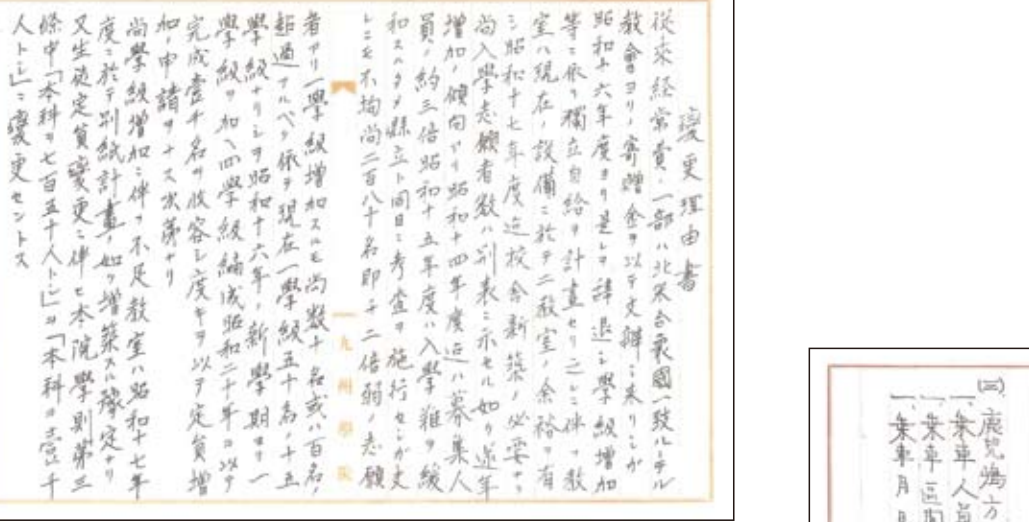 變更理由書
從来経常費ノ一部ハ北米合衆國一致ルーテル
教會ヨリノ寄贈金ヲ以テ支辨シ来リシガ
昭和十六年度ヨリ是レヲ辞退シ學級増加
等ニ依リ獨立自給ヲ計畫セリ之レニ伴フ教
室ハ現在ノ設備ニ於テ二教室ノ余裕ヲ有
シ昭和十七年度迄校舎新築ノ必要ナシ
尚入學志願者数ハ別表ニ示セル如ク逐年
増加ノ傾向アリ昭和十四年度迄ハ募集人
員ノ約三倍昭和十五年度ハ入學難ヲ緩
和スルタメ縣立ト同日ニ考査ヲ施行セシガ丈
レニモ不拘尚二百八十名即チ二倍弱ノ志願
者アリ一學級増加スルモ尚数十名或ハ百名ノ
超過アルベク依テ現在一學級五十名ノ十五
學級ナリシヲ昭和十六年ノ新學期ヨリ一
學級ヲ加ヘ四學級編成昭和二十年ヲ以テ
完成壹千名ヲ收容シ度キヲ以テ定員増
加ノ申請ヲナス次第ナリ
尚學級増加ニ伴フ不足教室ハ昭和十七年
度ニ於テ別紙計畫ノ如ク増築スル豫定ナリ
又生徒定員變更ニ伴ヒ本院學則第三
條中「本科ヲ七百五十人トシ」ヲ「本科ヲ壹千
人トシ」ニ變更セントス
九州學院
(三)鹿児嶋方
一、乗車人員
一、乗車区間
一、乗車月日